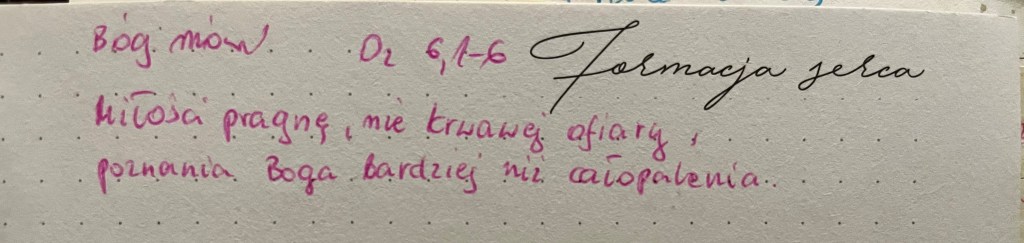 Bóg mów Oz 6,1-6 Formacja serca
Miłości pragnę, nie krwawej ofiary,
poznania Boga bardziej niż całopalenia.